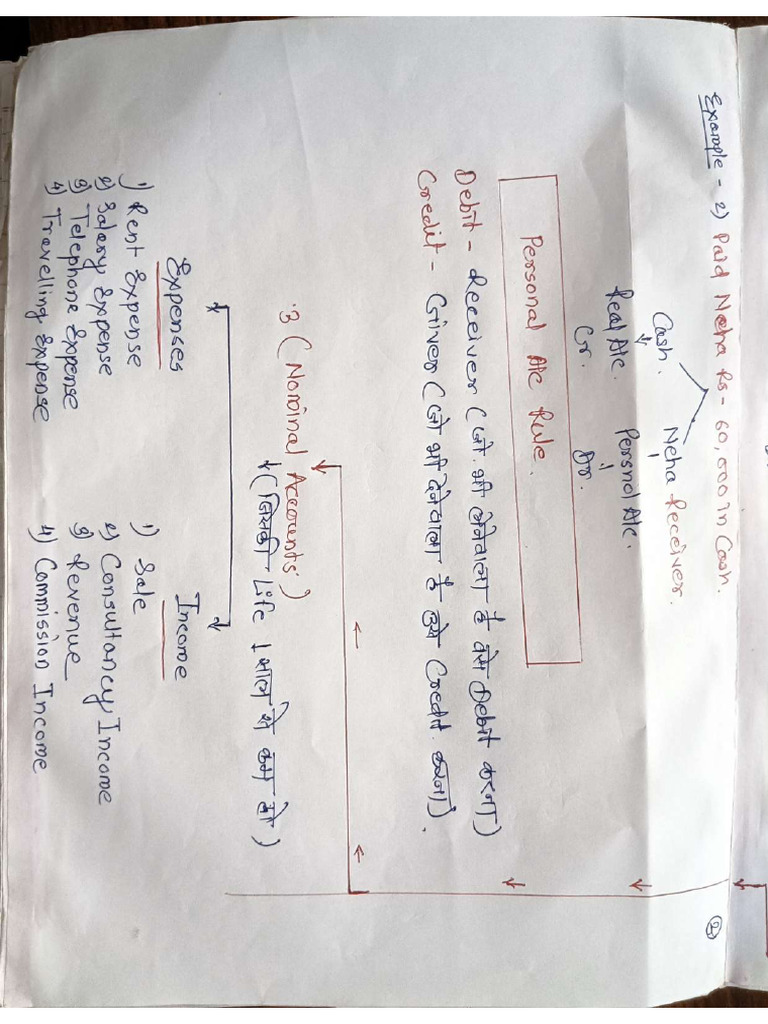 Example - 2) Paid Neha Rs - 60,000 in Cash.
②
Cash. Neha Receiver.
Real A/c. Persnol A/c.
Cr. Dr.
Personal A/c Rule.
Debit - Receiver (जो भी लेनेवाला है उसे Debit करना)
Credit - Giver (जो भी देनेवाला है उसे Credit करना).
3 (Nominal Accounts)
(जिसकी Life 1 साल से कम हो)
Expenses Income
1) Rent Expense 1) Sale
2) Salary Expense 2) Consultancy Income
3) Telephone Expense 3) Revenue
4) Travelling Expense 4) Commission Income